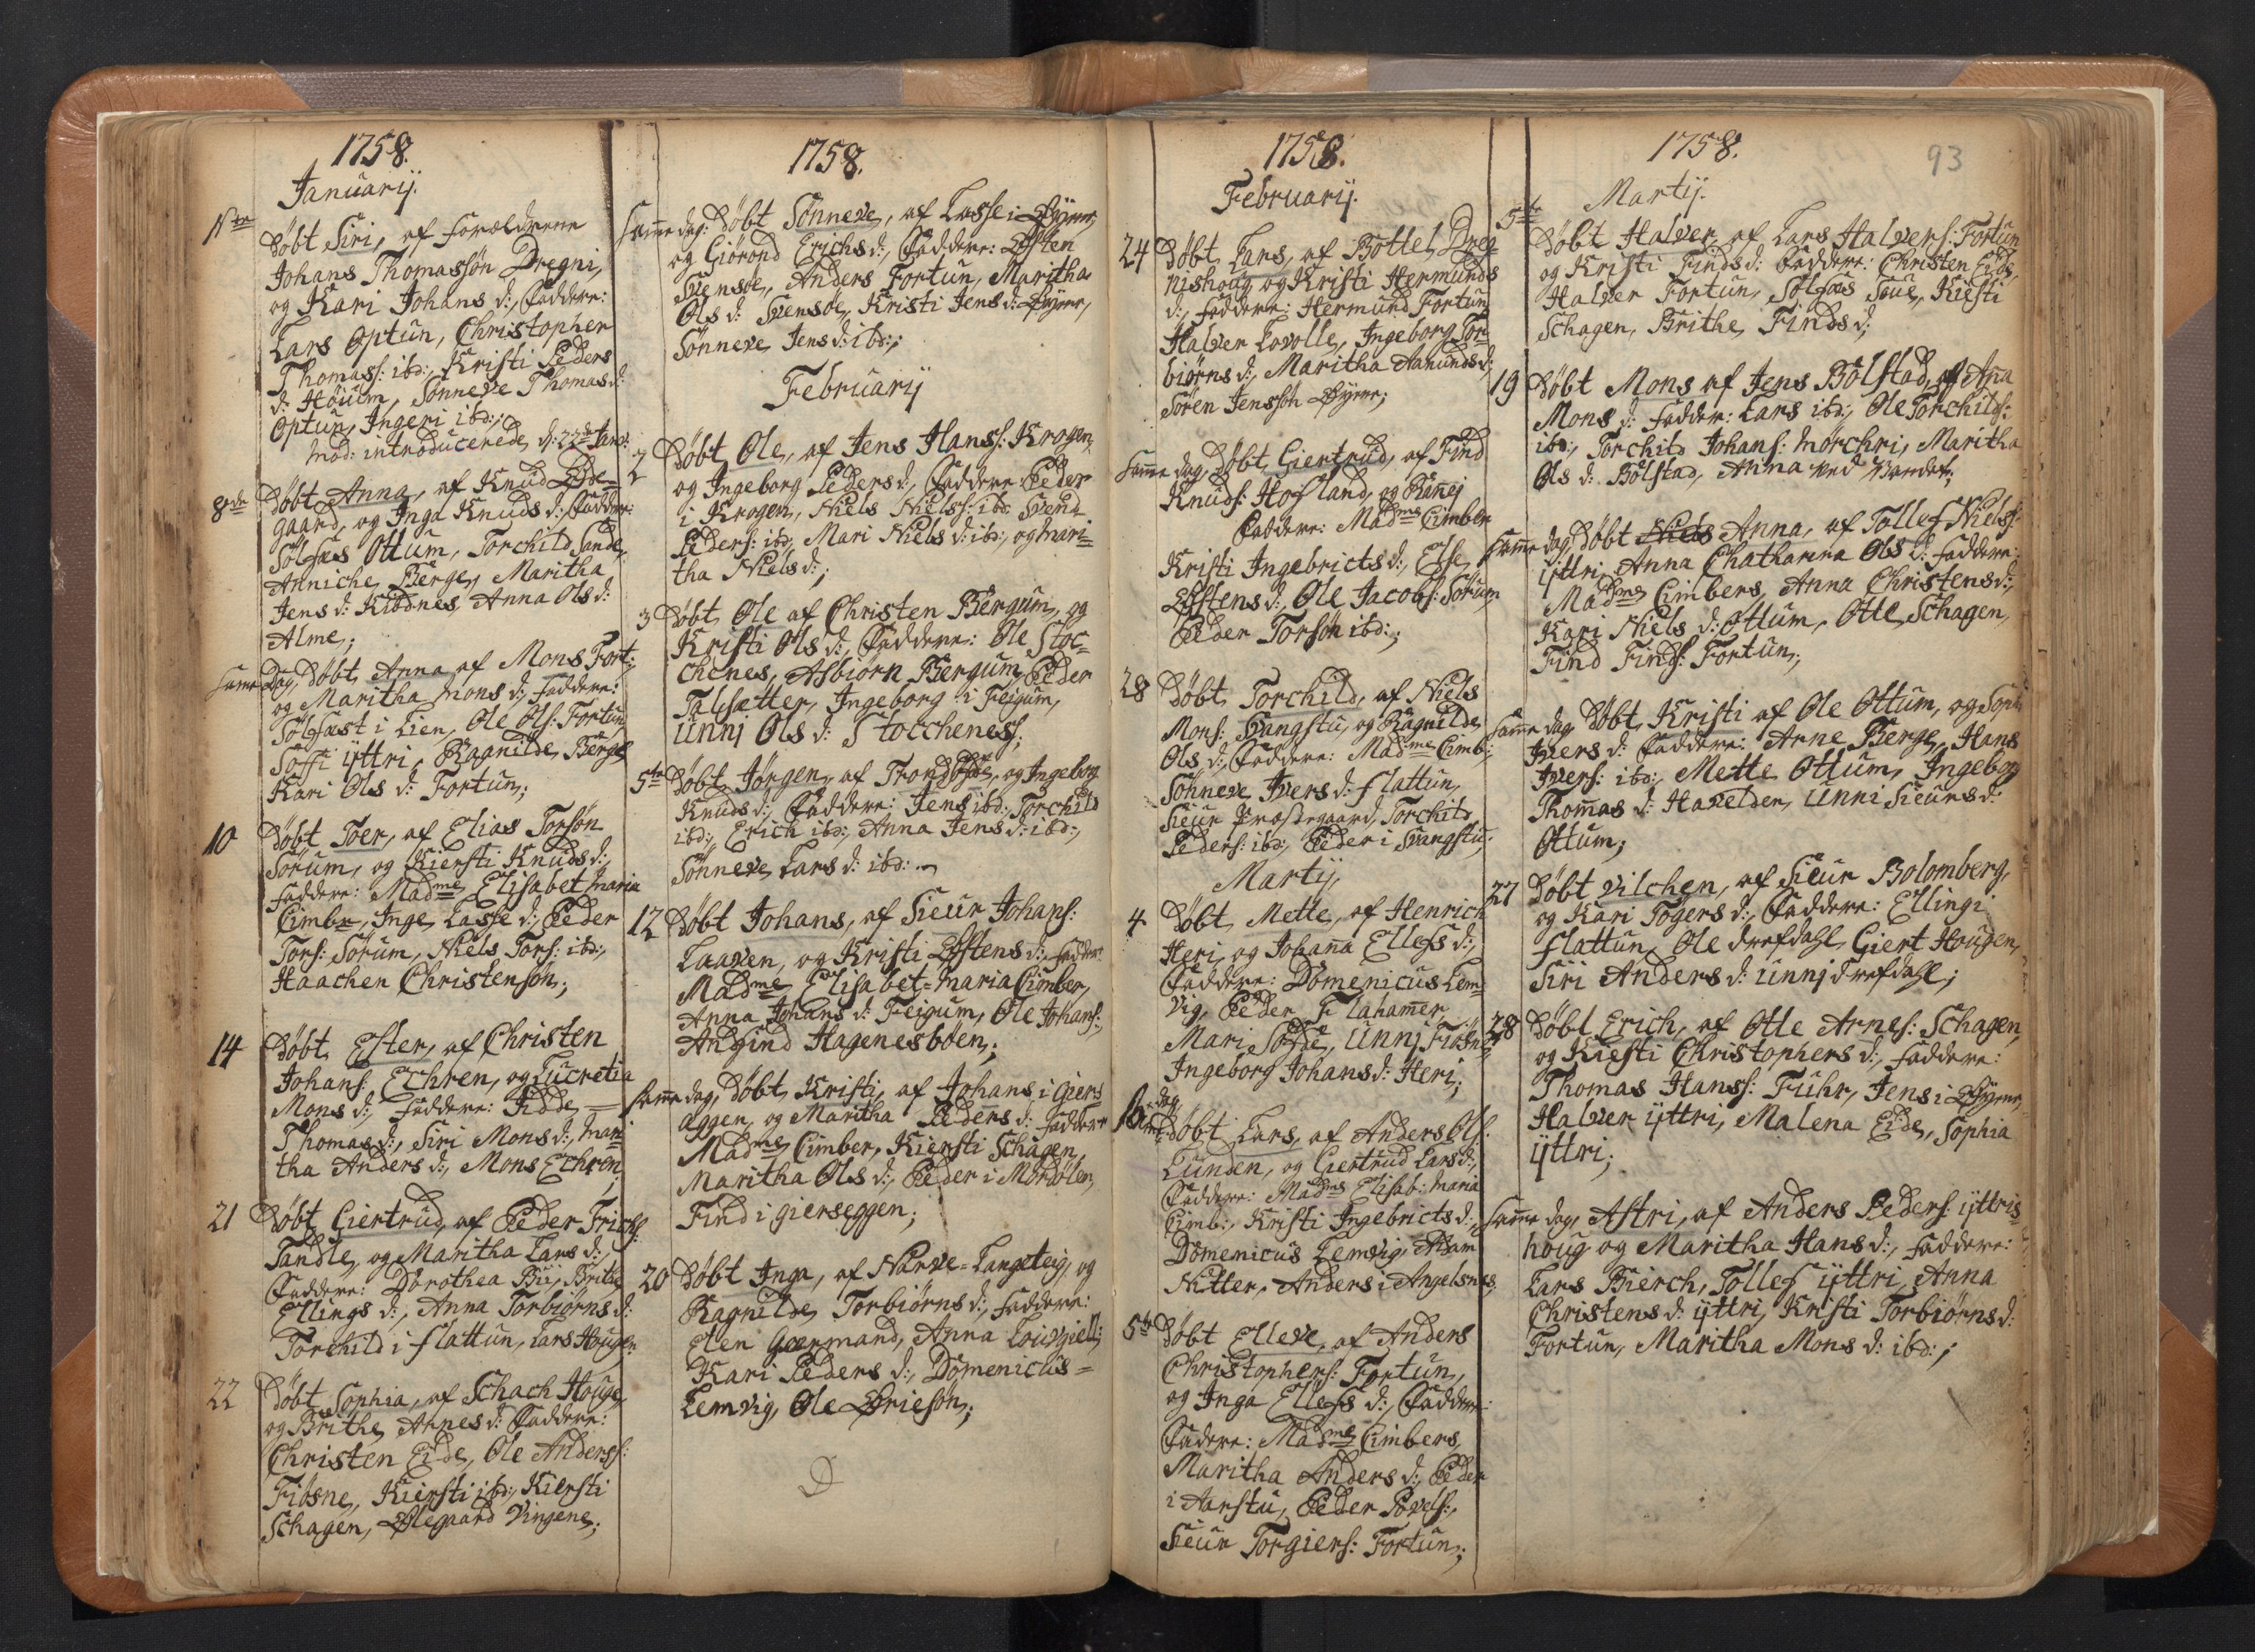 1758.
Januarij.
1ste Døbt Siri, af Forældrene
Johans Thomassøn Dregni,
og Kari Johans d:, Faddere:
Lars Optun, Christopher
Thomass: ibd:, Kristi Peders
d: Høium, Sønneve Thomas d:
Optun, Ingeri ibd:;
Mod: introducerede d: 22de Janv:
8de Døbt Anna, af Knud Eide-
gaard, og Inga Knuds d: Faddere:
Sølfæs Ottum, Torchild Sande,
Anniche Berge, Maritha
Jens d: Kibdnes, Anna Ols d:
Alme;
Same Dag, Døbt Anna af Mons Fort:,
og Maritha Mons d:, Faddere:
Sølfæst i Lien, Ole Ols: Fortun,
Søffi ÿttri, Ragnilde Berge
Kari Ols d: Fortun;
10 Døbt Toer, af Elias Torsøn
Sørum, og Kiersti Knuds d:,
Faddere: Madme Elisabet Maria
Cimbr, Inge Lasse d:, Peder
Tors: Sørum, Niels Tors: ibd:,
Haachen Christensøn;
14 Døbt Ester, af Christen
Johans: Echren, og Lucretia
Mons d:, Faddere: Fidde
Thomas d:, Siri Mons d:, Mari-
tha Anders d:, Mons Echren;
21 Døbt Giertrud, af Peder Frichs:
Tandle, og Maritha Lars d:,
Faddere: Dorothea Bu, Brithe
Ellings d:, Anna Torbiørns d:
Torchild i Flattun, Lars Hougen
22 Døbt Sophia, af Schach Houge,
og Brithe Arnes d: Faddere:
Christen Eide, Ole Anderss:
Fiøsne, Kiersti ibd:, Kiersti
Schagen, Ølegaard Vingene;
1758.
Same dag: Døbt Sønneve, af Lasse i Øyene,
og Giørond Erichs d:, Faddere: Østen
Svensøe, Anders Fortun, Maritha
Ols d: Svensøe, Kristi Jens d: Øyene,
Sønneve Jens d: ibd:;
Februarij
2 Døbt Ole, af Jens Hanss: Krogen,
og Ingeborg Peders d:, Faddere: Peder
i Krogen, Niels Nielss: ibd: Svend
Peders: ibd:, Mari Niels d: ibd:, og Mari-
tha Niels d:;
3 Døbt Ole af Christen Bergum, og
Kristi Ols d:, Faddere: Ole Stoc-
chenes, Asbiørn Bergum, Peder
Talsætter, Ingeborg i Feigum,
Unnj Ols d: Stoccheness;
5te Døbt Jørgen, af Trond Eide, og Ingeborg
Knuds d:, Faddere: Jens ibd:, Torchild
ibd:, Erich ibd:, Anna Jens d: ibd:,
Sønneve Lars d: ibd:
12 Døbt Johans, af Sieur Johans:
Laaven, og Kristi Østens d:, Fadder:
Madme Elisabet-Maria Cimber,
Anna Johans d: Feigum, Ole Johans:,
Anfind Hagenesbøen;
Same dag, Døbt Kristi, af Johans i Giers
eggen, og Maritha Peders d: Faddere
Madme Cimber, Kiersti Schagen,
Maritha Ols d:, Peder i Mordølen,
Find i Gierseggen;
20 Døbt Inga, af Narve-Langeteig, og
Ragnilde Torbiørns d:, Faddere:
Eten Goermand, Anna Louvgiell;
Kari Peders d:, Domenicus-
Lemvig, Ole Øriesøn;
D
1758.
Februarij.
24 Døbt Lars, af Bottel Dreg
nishoug og Kristi Hermunds
d:, Faddere: Hermund Fortun,
Halver Lovolle, Ingeborg Tor-
biørns d:, Maritha Aamunds d:,
Søren Jenssøn Øyene;
Same dag, Døbt Giertrud, af Find
Knuds: Hofland, og Rannej
Faddere: Madme Cimber
Kristi Ingebricts d:, Else
Østens d:, Ole Jacobs: Sørum
Peder Torsøn ibd:;
28 Døbt Torchild, af Niels
Mons: Svangstu, og Ragnilde
Ols d:, Faddere: Madme Cimb:;
Sønneve Ivers d: Flattun,
Sieur Præstegaard, Torchild
Peders: ibd:, Peder i Svangstu;
Martij,
4 Døbt Mette, af Henrich
Heri, og Johana Ellefs d:,
Faddere: Domenicus Lem-
vig, Peder Flahamer,
Mari Sofie, Unnj Fiøsne,
Ingeborg Johans d: Heri;
Same dag Døbt Lars, af Anders Ols:
Lunden, og Giertrud Lars d:,
Faddere: Madme Elisab: Maria
Cimb:, Kristi Ingebricts d:,
Domenicus Lemvig, Adam
Nitter, Anders i Angelsnes;
5te Døbt Elleve, af Anders
Christophers: Fortun,
og Inga Ellefs d:, Faddere:
Fadere: Madme Cimbers,
Maritha Anders d:, Peder
i Aarstu, Peder Povels:,
Sieur Torgiers: Fortun;
1758.
93
Martij.
5te Døbt Halver, af Lars Halvers: Fortun
og Kristi Finds d: Faddere: Christen Eide,
Halver Fortun, Sølfæs Soue, Kiesti
Schagen, Brithe Finds d:;
19 Døbt Mons af Jens Bolstad, og Ana
Mons d: Fadder: Lars ibd:, Ole Torchilds:
ibd:, Torchild Johans: Mørchri, Maritha
Ols d: Bolstad, Anna ved Vandet;
Same dag, Døbt Niels Anna, af Tollef Niels:
ÿttri, Anna Chatharina Ols d: Faddere:
Madme Cimbers, Anna Christens d:,
Kari Niels d: Ottum, Otte Schagen,
Find Finds: Fortun;
Same dag Døbt Kristi af Ole Ottum, og Soph:
Ivers d: Faddere: Arne Berge, Hans
Ivers: ibd:, Mette Ottum, Ingeborg
Thomas d: Havelden, Unni Sieurs d:
Ottum;
27 Døbt Vilchen, af Sieur Bolomberg,
og Kari Togers d:, Faddere: Ellingi
Flattun, Ole Drefdahl, Giert Hougen,
Siri Anders d: Unnj Drefdahl;
28 Døbt Erich, af Otte Arnes: Schagen,
og Kiesti Christophers d:, Faddere:
Thomas Hanss: Fuhr, Jens i Øyene,
Halver ÿttri, Malena Eide, Sophia
ÿttri;
Same dag, Astri, af Anders Peders: ÿttris-
houg og Maritha Hans d:, Faddere:
Lars Bierch, Tollef ÿttri, Anna
Christens d: ÿttri, Kristi Torbiørns d:
Fortun, Maritha Mons d: ibd:;